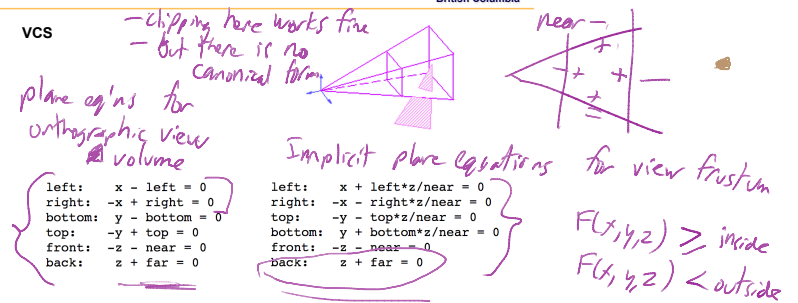 British Columbia
VCS
- clipping here works fine
- but there is no
canonical form
near -
+
- + + -
+
=
plane eq'ns for
orthographic view
volume
Implicit plane equations for view frustum
left: x - left = 0
right: -x + right = 0
bottom: y - bottom = 0
top: -y + top = 0
front: -z - near = 0
back: z + far = 0
left: x + left*z/near = 0
right: -x - right*z/near = 0
top: -y - top*z/near = 0
bottom: y + bottom*z/near = 0
front: -z - near = 0
back: z + far = 0
F(x,y,z) ≥ inside
F(x,y,z) < outside